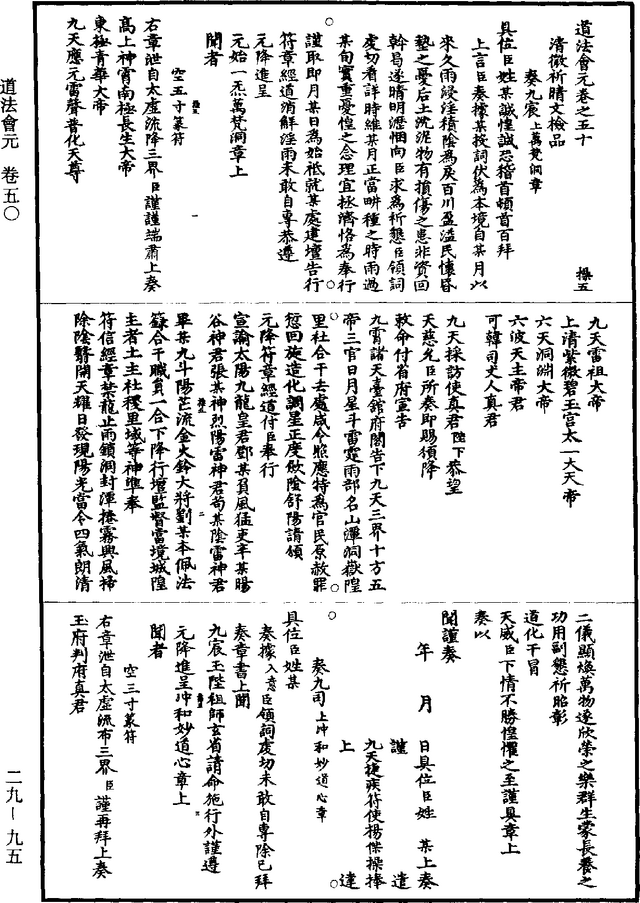 道法會元卷之五十　操五
清微祈晴文檢品
奏九宸上萬梵洞章
具位臣姓某誠惶誠恐稽首頓首百拜
上言臣奏據某投詞伏為本境自某月以
來久雨浸淫積陰為戾百川盈溢民懷昏
墊之憂后土沈泥物有損傷之患非資回
斡曷遂晴明瀝悃向臣求為祈懇臣領詞
處切看詳時維某月正當畊種之時雨過
某旬實重憂惶之念理宜拯濟恪為奉行
謹取即月某日為始祗就某處建壇告行
符章經道消解淫雨未敢自專恭遵
元降進呈
元始一炁萬梵洞章上
聞者
空五寸篆符
右章泄自太虛流降三界臣謹謹端肅上奏
高上神霄南極長生大帝
東極青華大帝
九天應元雷聲普化天尊
九天雷祖大帝
上清紫微碧玉宮太一大天帝
六天洞淵大帝
六波天主帝君
可韓司丈人真君
九天採訪使真君陛下恭望
天慈允臣所奏即賜頒降
敕命付省府宣告
九霄諸天臺館府閣告下九天三界十方五
帝三官日月星斗雷霆雨部名山潭洞嶽隍
里社合干去處咸令照應特為官民原赦罪
愆回旋造化調星正度斂陰舒陽請頒
元降符章經道付臣奉行
宣諭太陽九龍皇君鄧某負風猛吏辛某暘
谷神君張某神烈陽雷神君苟某陰雷神君
畢某九斗陽芒流金火鈴大將劉某本佩法
籙合干職員一合下降行壇監督當境城隍
主者土主社稷里域等神準奉
符信經章禁龍止雨鎖洞封潭捲霧興風掃
除陰翳開天耀日發現陽光當令四氣朗清
二儀顯煥萬物遂欣榮之樂群生蒙長養之
功用副懇祈昭彰
道化干冒
天威臣下情不勝惶懼之至謹具章上
奏以
聞謹奏
年　月　日具位臣姓　某上奏
謹　遣
九天捷疾符使楊傑操捧
上　達
奏九司上冲和妙道心章
具位臣姓某
奏據入意臣領詞虔切未敢自專除已拜
奏章書上聞
九宸玉陛祖師玄省請命施行外謹遵
元降進呈冲和妙道心章上
聞者
空三寸篆符
右章泄自太虛流布三界臣謹再拜上奏
玉府判府真君
道法會元　卷五〇
二九—九五